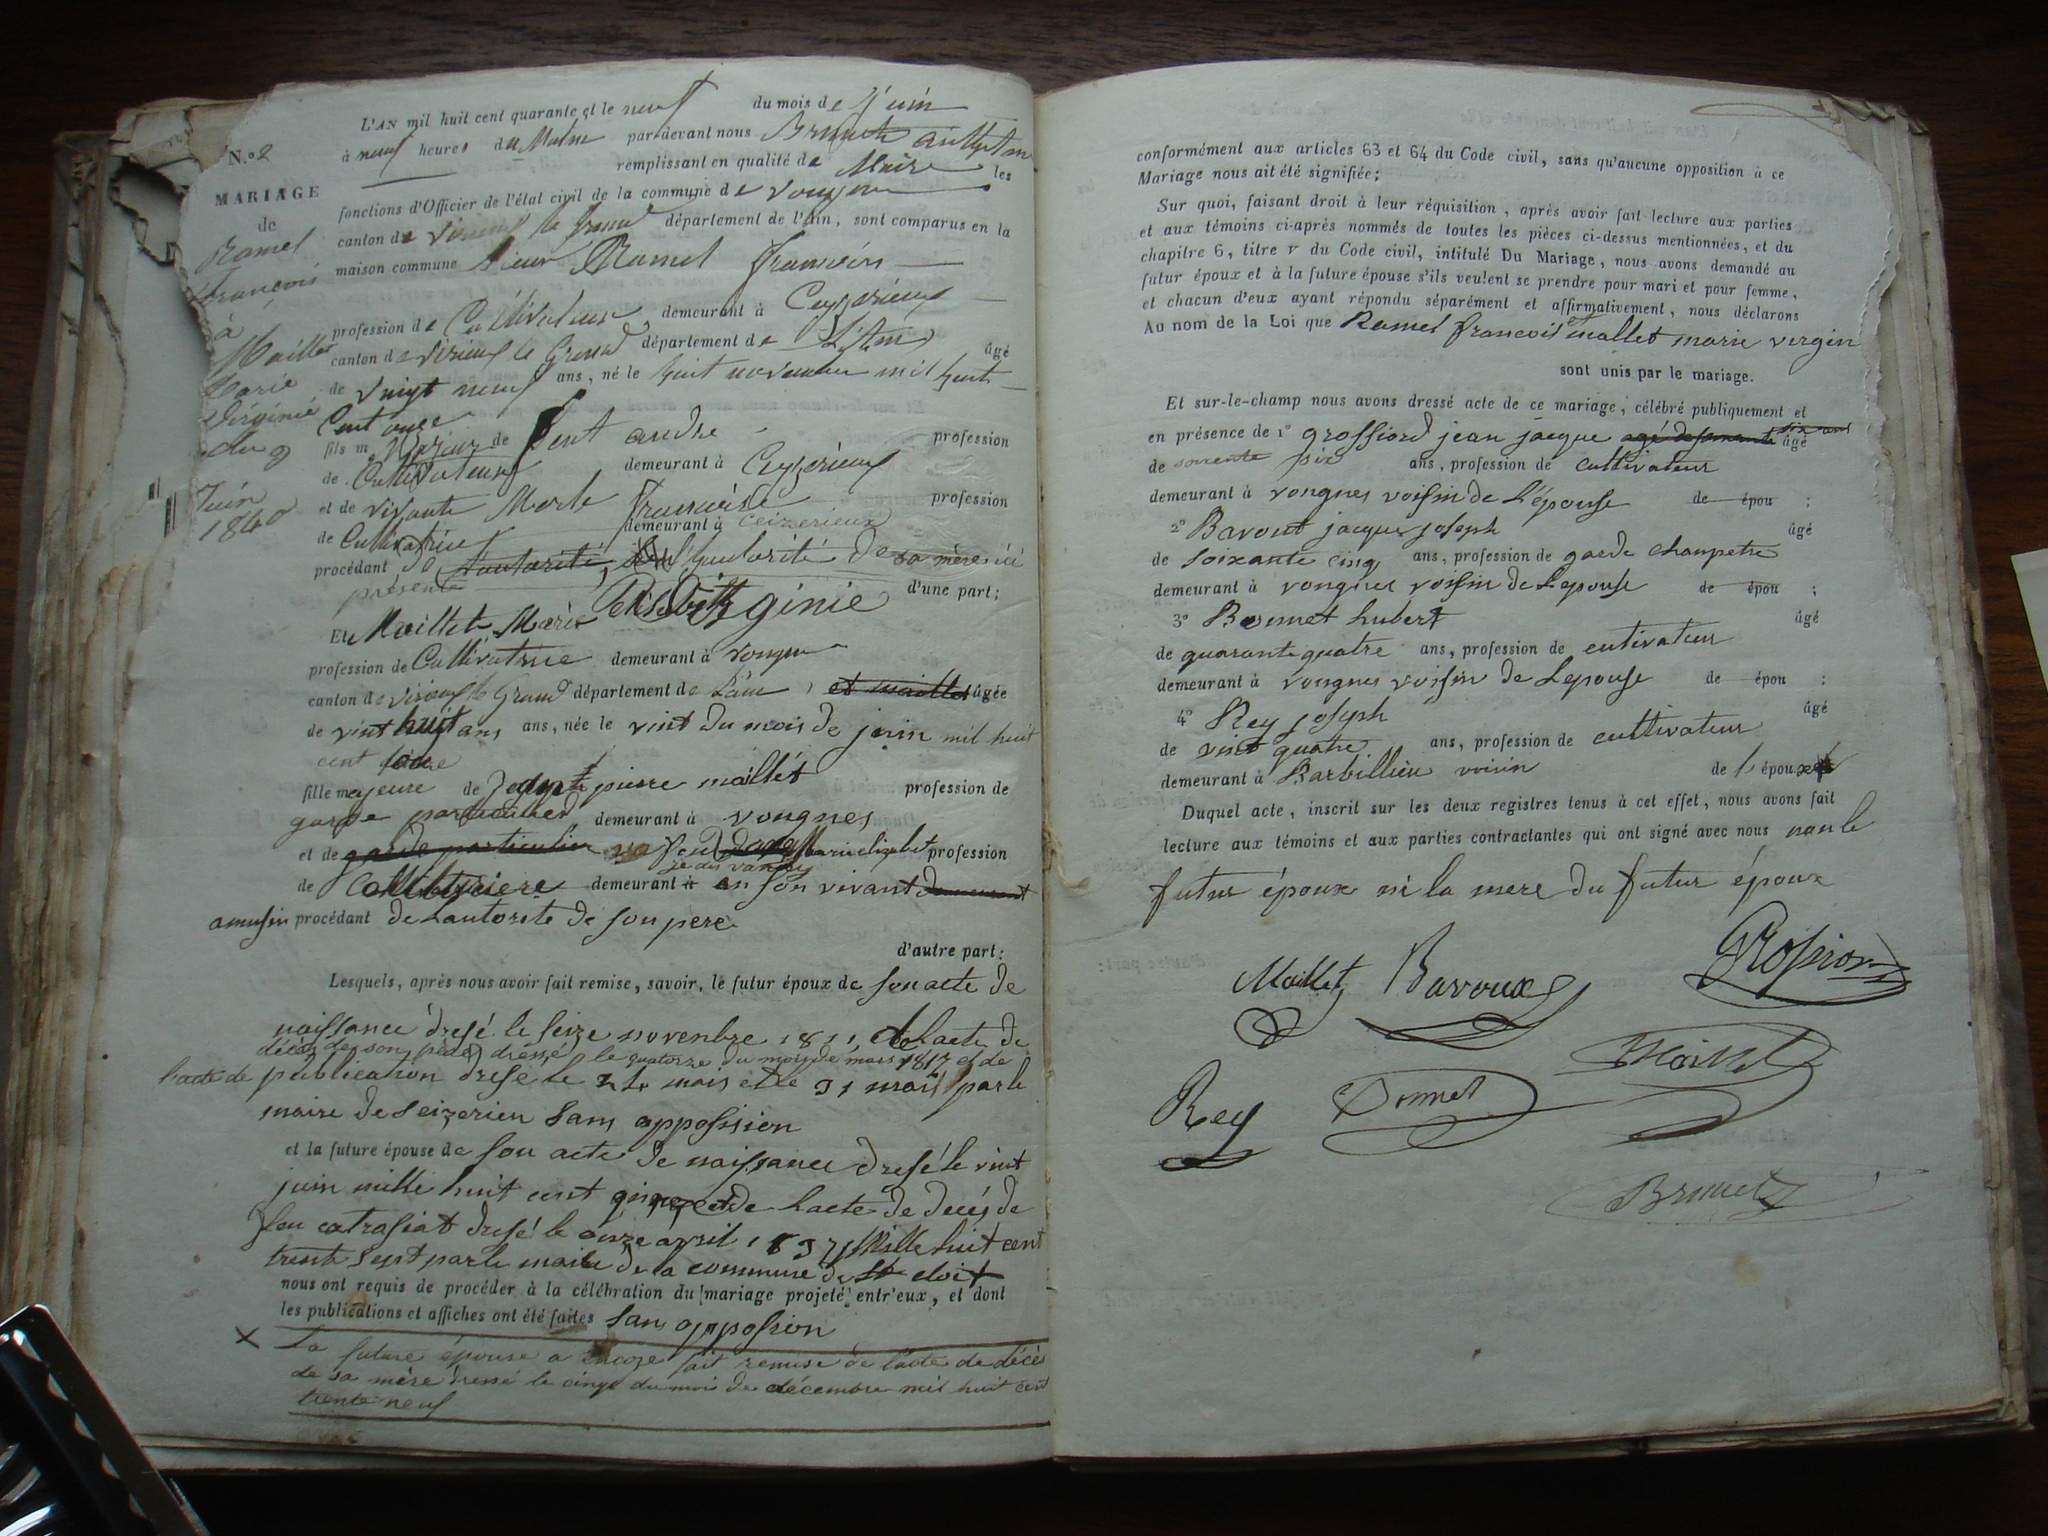 L'AN mil huit cent quarante et le neuf du mois de juin
à neuf heures du Matin par-devant nous
remplissant en qualité de Maire les
fonctions d'Officier de l'état civil de la commune de
canton de virieu le Grand département de l'Ain, sont comparus en la
maison commune sieur Ramel François
profession de Cultivateur demeurant à Ceyzerieux
canton de Virieu le Grand département de L'Ain âgé
de vingt neuf ans, né le huit novembre mil huit
Cent onze
fils m Majeur de andre profession
de Cultivateur demeurant à Ceyzérieux
et de vivante Merle Françoise profession
de Cultivatrice demeurant à ceizerieux
procédant de l'autorité de sa mère ici
présente d'une part;
Et Maillet Marie ginie
profession de Cultivatrice demeurant à
canton de virieu le Grand département de L'ain, et maillet âgée
de vint huit ans ans, née le vint du mois de juin mil huit
cent
fille majeure de pierre mallet profession de
garde particulier demeurant à vongnes
et de garde particulier Marie elizabet profession
de demeurant à en son vivant demeurant
procédant de lautorite de son pere
d'autre part:
Lesquels, après nous avoir fait remise, savoir, le futur époux de son acte de
naissance dresé le seize novenbre 1811 de lacte de
décès de son père dréssé le quatorze du mois de mars 1817 et de
l'acte de publication dresé le 24 mais et le 31 mais par le
maire de seizerieu sans opposision
et la future épouse de son acte de naissance dresé le vint
juin mille huit cent et de lacte de decés de
feu dresé le onze avril 1837 Mille huit cent
trente sept par le maire de la commune de
nous ont requis de procéder à la célébration du mariage projeté entr'eux, et dont
les publications et affiches ont été faites san opposion
X La future épouse a encore fait remise de l'acte de décès
de sa mère dressé le cinq du mois de décembre mil huit cent
trente neuf
N.o 2
MARIAGE
de
Ramel
François
à
Maillet
Marie
Virginie
du 9
Juin
1840
conformément aux articles 63 et 64 du Code civil, sans qu'aucune opposition à ce
Mariage nous ait été signifiée;
Sur quoi, faisant droit à leur réquisition, après avoir fait lecture aux parties
et aux témoins ci-après nommés de toutes les pièces ci-dessus mentionnées, et du
chapitre 6, titre v du Code civil, intitulé Du Mariage, nous avons demandé au
futur époux et à la future épouse s'ils veulent se prendre pour mari et pour femme,
et chacun d'eux ayant répondu séparément et affirmativement, nous déclarons
Au nom de la Loi que Ramel francois et mallet marie vergin
sont unis par le mariage.
Et sur-le-champ nous avons dressé acte de ce mariage, célébré publiquement et
en présence de 1° grossiord jean jacque âgé
de soixente six ans, profession de cultivateur
demeurant à vongnes voisin de L'épouse de épou ;
2° Bavout jacque joseph âgé
de soixante cinq ans, profession de garde champetre
demeurant à vongnes voisin de Lepouse de épou ;
3° Bonnet hubert âgé
de quarante quatre ans, profession de cutivateur
demeurant à vongnes voisin de Lepouse de épou ;
4° Rey joseph âgé
de vint quatre ans, profession de cultivateur
demeurant à Barbillieu voisin de l'époux
Duquel acte, inscrit sur les deux registres tenus à cet effet, nous avons fait
lecture aux témoins et aux parties contractantes qui ont signé avec nous non le
futur époux ni la mere du futur époux
Maillet Bavoux Grossiord
Rey Bonnet Maillet
Brunet